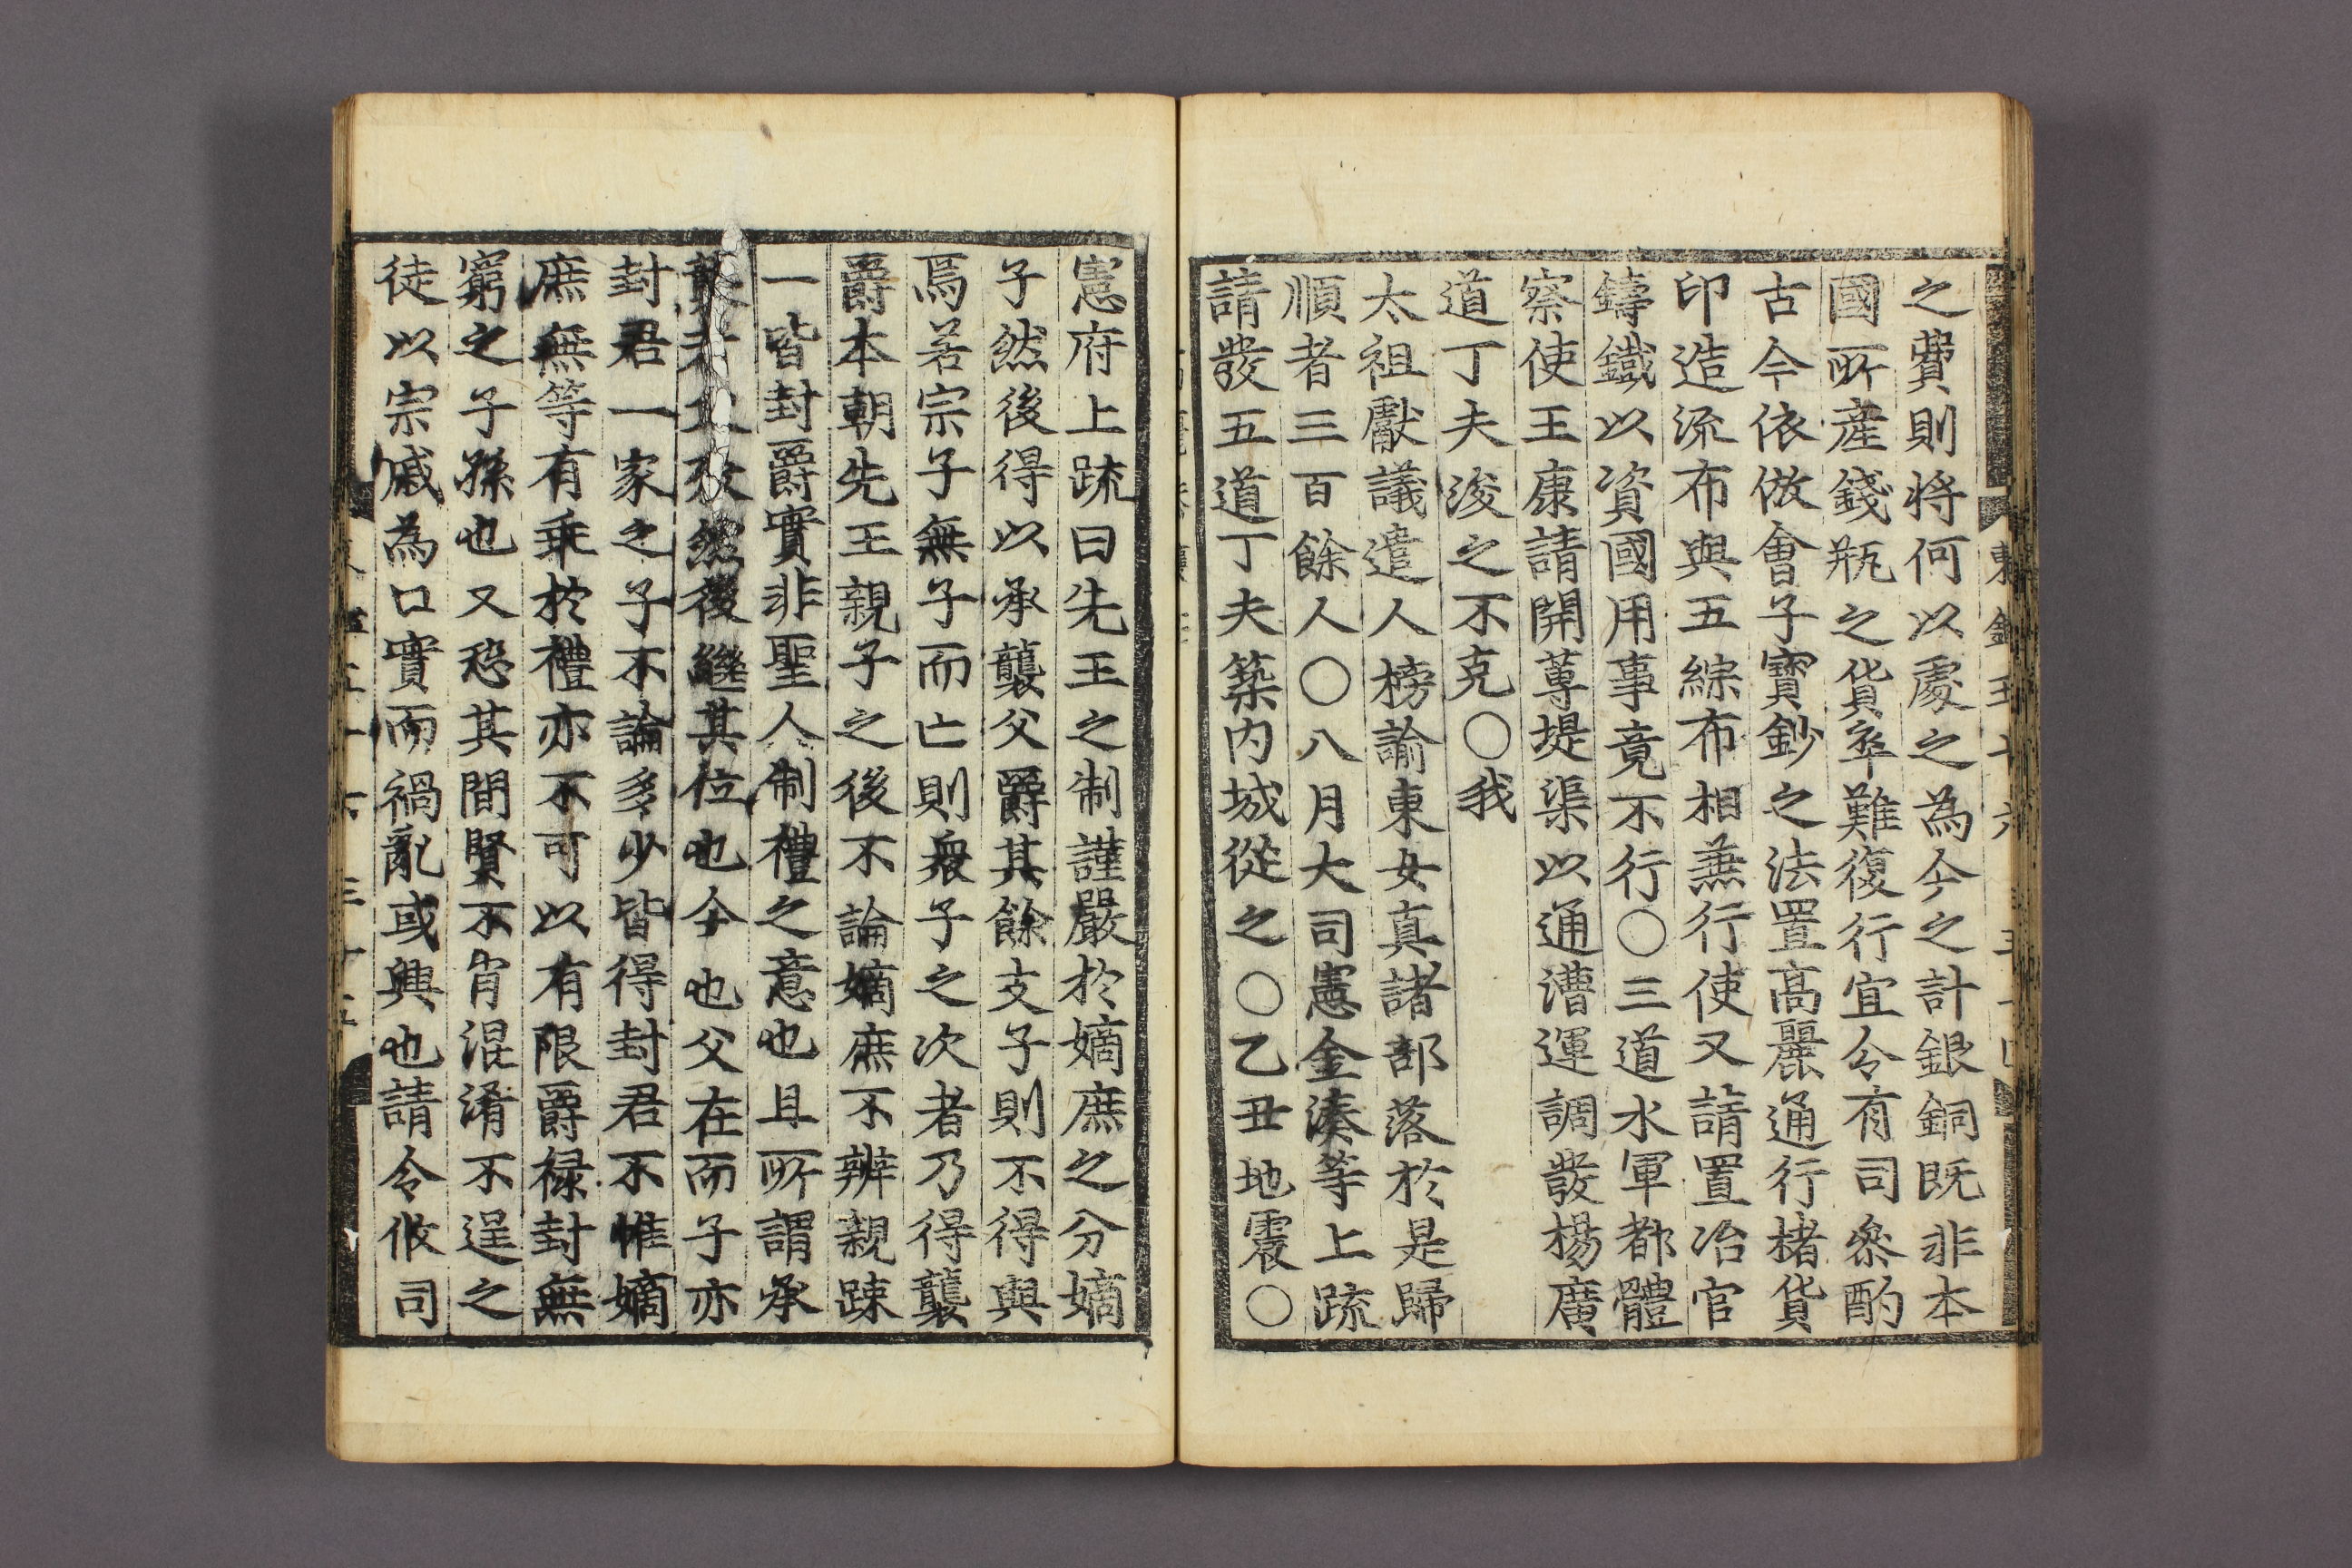 之費則将何以處之為今之計銀銅既非本
國所産錢瓶之貨率難復行宜令有司叅酌
古今依倣會子寶鈔之法置高麗通行楮貨
印造流布與五綜布相兼行使又請置冶官
鑄鐵以資國用事竟不行〇三道水軍都體
察使王康請開蓴堤渠以通漕運調發楊廣
道丁夫浚之不克〇我
太祖獻議遣人榜諭東女真諸部落於是歸
順者三百餘人〇八月大司憲金湊等上疏
請發五道丁夫築內城從之〇乙丑地震〇
憲府上疏曰先王之制謹嚴於嫡庶之分嫡
子然後得以承襲父爵其餘支子則不得與
焉若宗子無子而亡則衆子之次者乃得襲
爵本朝先王親子之後不論嫡庶不辨親踈
一皆封爵實非聖人制禮之意也且所謂承
襲者父歿然後繼其位也今也父在而子亦
封君一家之子不論多少皆得封君不惟嫡
庶無等有乖於禮亦不可以有限爵禄封無
窮之子孫也又恐其間賢不肖混淆不逞之
徒以宗戚為口實而禍亂或興也請令攸司